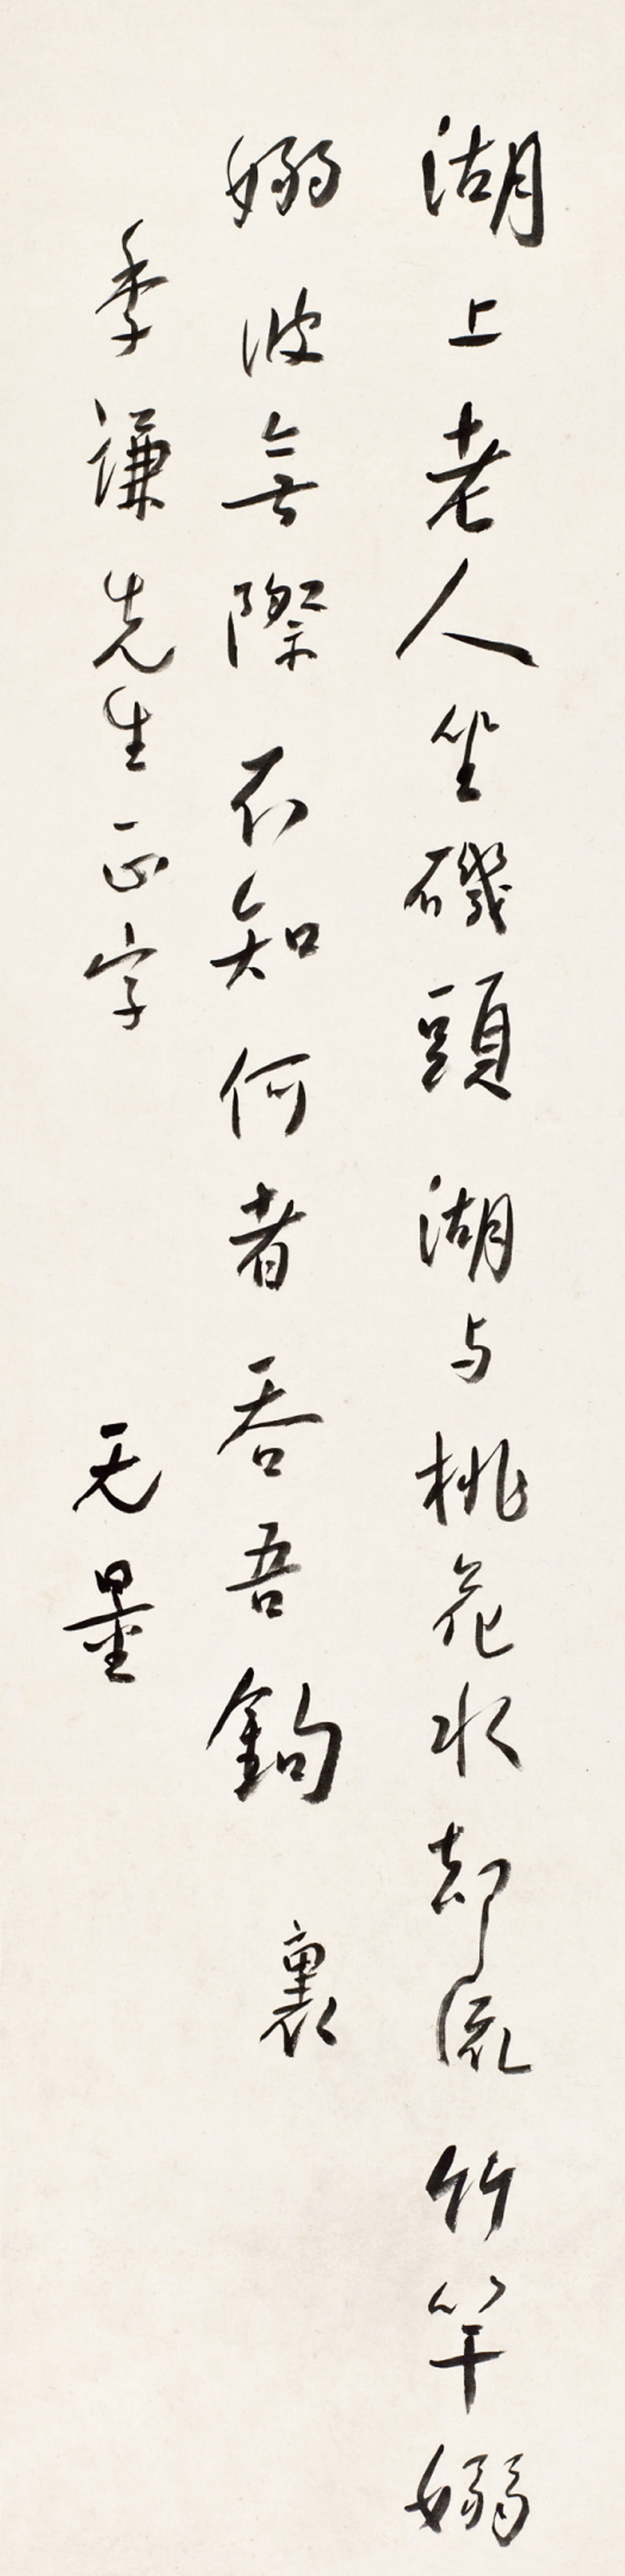 湖上老人坐磯頭湖与桃花水却流竹竿嫋
嫋波無際不知何者吞吾鉤 裏
季謙先生正字 无量